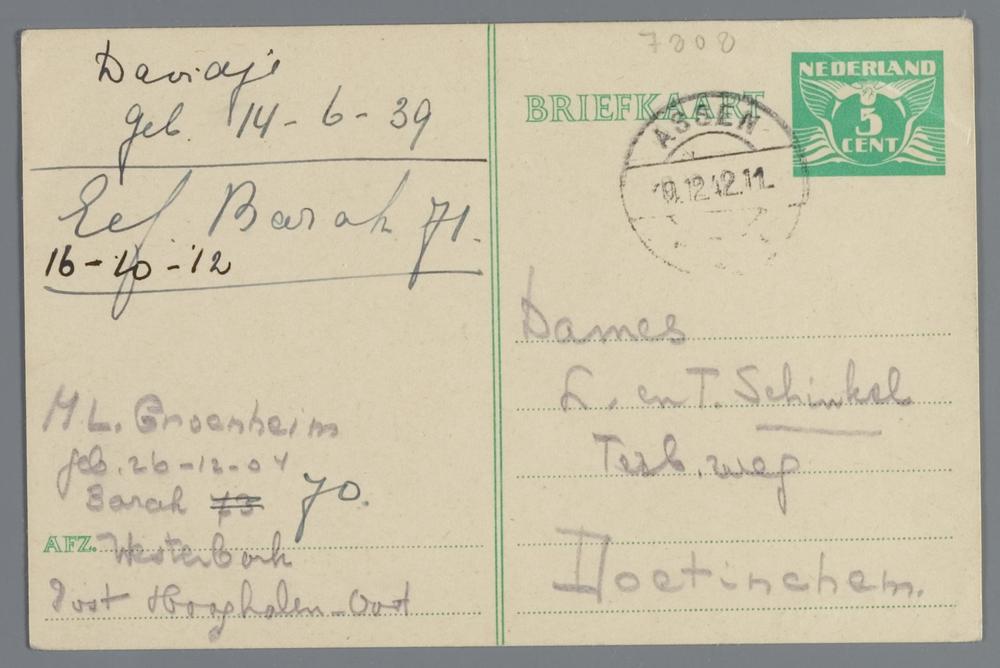 Davidje
geb. 14-6-39
Eef. Barak 71.
16-10-12
M L. Groenheim
geb. 26-12-04
Barak 73 70.
AFZ. Westerbork
Post Hooghalen-Oost
7808
BRIEFKAART
NEDERLAND
5
CENT
ASSEN
12.42.11
Dames
L. en T. Schinkel
Terb. weg
Doetinchem.